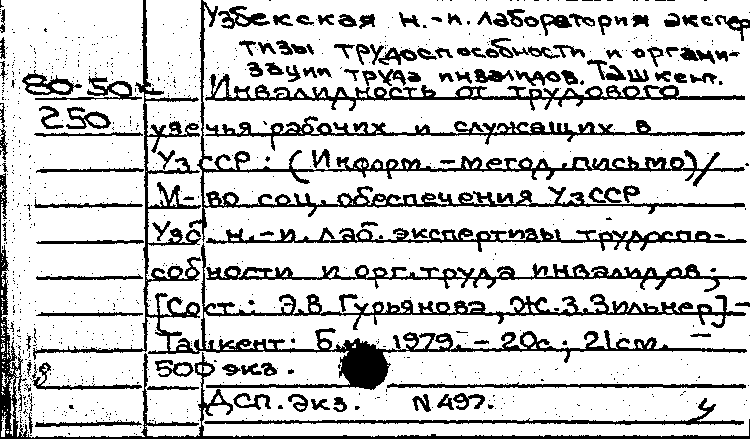 Узбекская н.-и. лаборатория экспер
тизы трудоспособности и органи-
зации труда инвалидов. Ташкент.
80-50
Инвалидность от трудового
250
увечья рабочих и служащих в
УзССР: (Информ.-метод. письмо)/
М-во соц. обеспечения УзССР,
Узб. н.-и. лаб. экспертизы трудоспо-
собности и орг. труда инвалидов;
[Сост.: Э.В. Гурьянова, Ж.З. Зильмер]-
Ташкент: Б.и. 1979. - 20с; 21см. -
500 экз.
ДСП. экз. N 497.